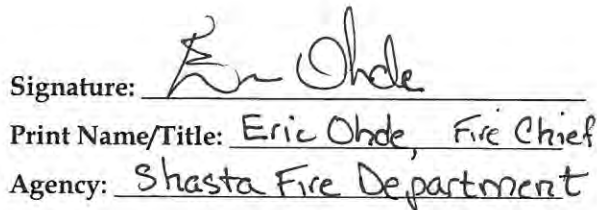 Signature: Eric Ohde
Print Name/Title: Eric Ohde, Fire Chief
Agency: Shasta Fire Department